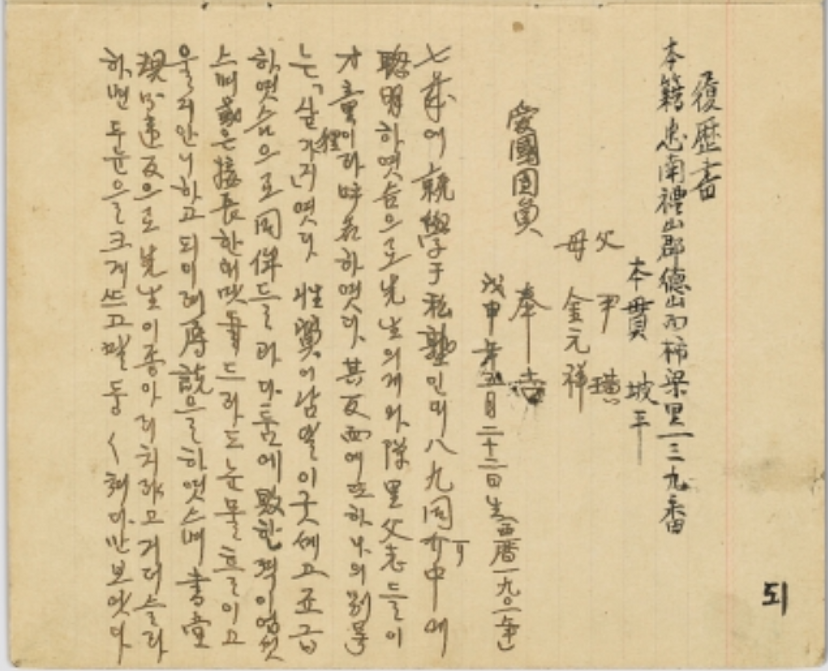 履歷書
本籍 忠南禮山郡德山面柿梁里一三九番
本貫 坡平
父 尹 璜
母 金元祥
愛國團員 奉吉
戊申年五月二十二日生(西曆一九〇八年)
七歲에 就學于私塾인데 八九同介中에
聰明하엿슴으로 先生의게와 隣里父老들이
才童이라 呼名하엿다. 其反面에 또하나의 別号
는「살가지(狸)」엿다. 性質이 남달이 굿세고 조급
하엿슴으로 同伴들과 다툼에 敗한 적이 업섯
스며 或은 接長한의 맷드라도 눈물 흘이고
울기안니하고 되이려 辱說을 하엿스며 書堂
規則違反으로 先生이 종아리 치랴고 거더슬라
하면 두눈을 크게 쓰고 말둥〱 쳐다만 보앗다
51